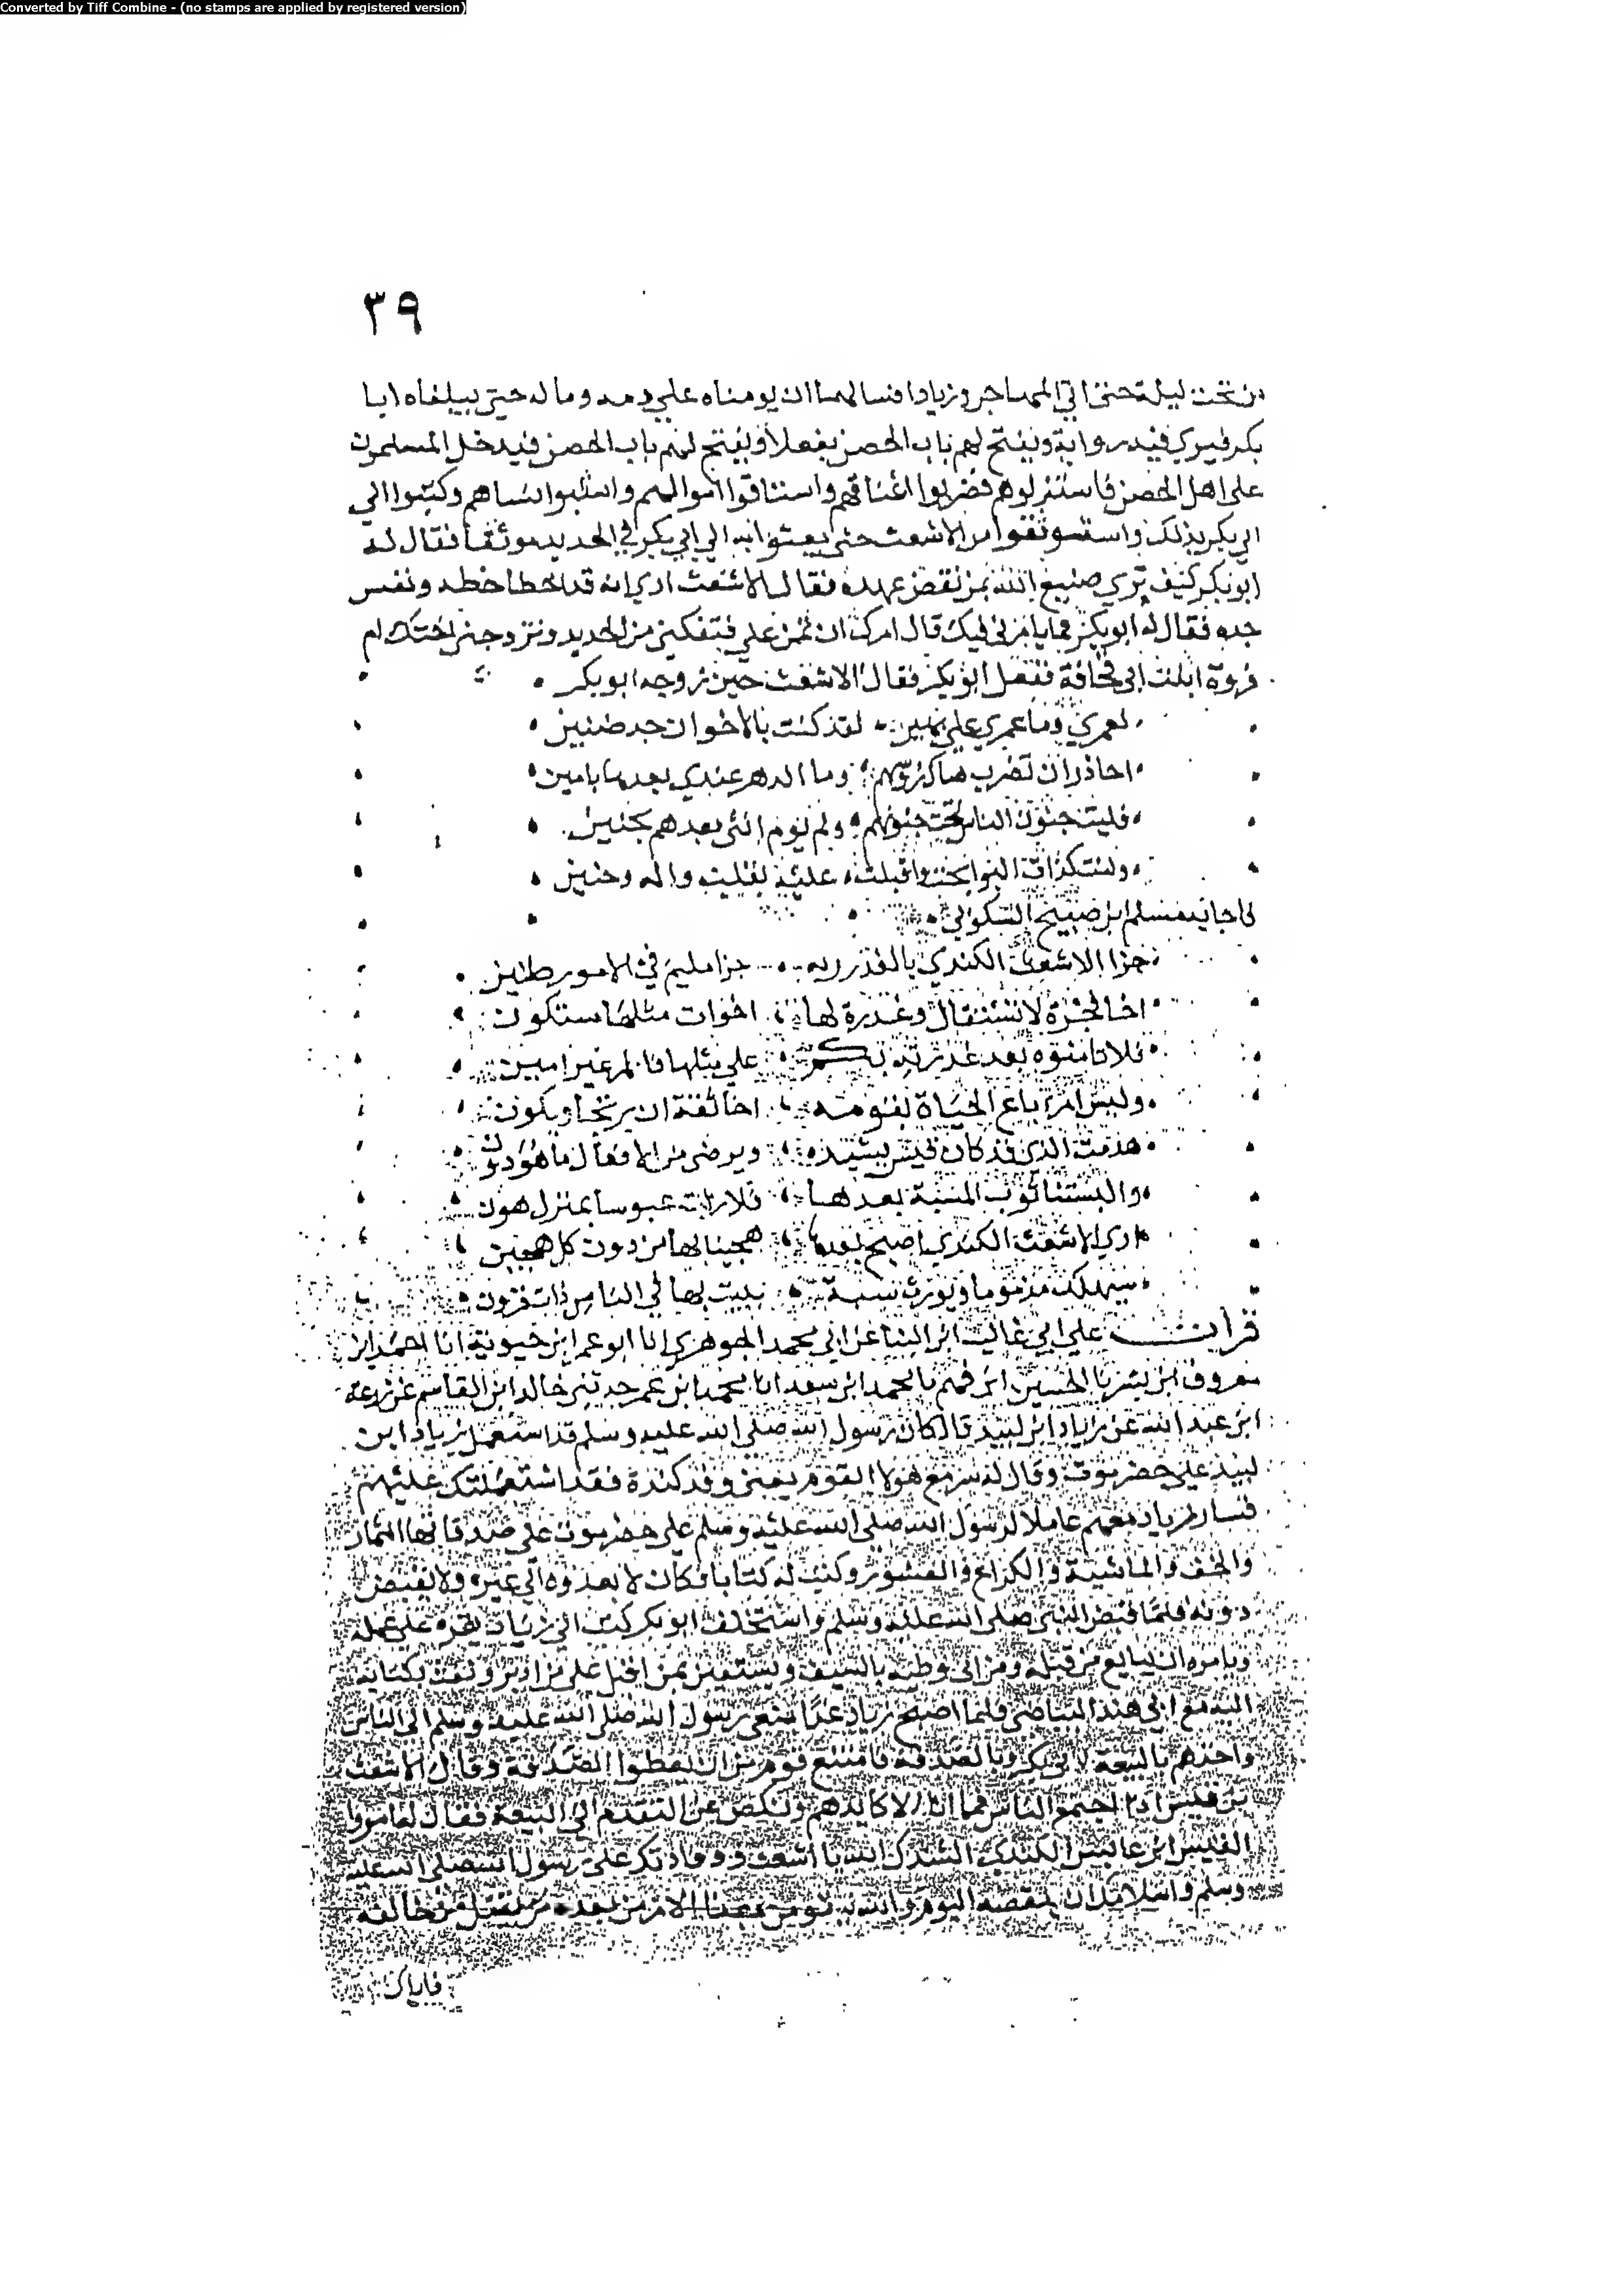 Converted by Tiff Combine - (no stamps are applied by registered version)
٣٩
ليلة حتى اتي المهاجر وزيادا فسالهما ان يومناه علي دمه وماله حتى يبلغاه ابا
بكر فيري فيه رايه ويفتح لهم باب الحصن ففعلا وفتح لهم باب الحصن فيدخل المسلمون
على اهل الحصن فاستنزلوهم فضربوا اعناقهم واستاقوا اموالهم واستبوا نساهم وكتبوا الي
ابي بكر بذلك واستوثقوا من الاشعث حتى بعثوا به الي ابي بكر في الحديد موثقا فقال له
ابو بكر كيف تري صنيع الله بمن نقض عهده فقال الاشعث اري انه قد اخطا حظه ونفس
جده فقال له ابو بكر فما يامرني فيك قال امرك ان تمن علي فتفكني من الحديد وتزوجني اختك ام
فروة ابنت ابي قحافة ففعل ابو بكر فقال الاشعث حين زوجه ابو بكر
لعمري وما عمري علي بهين لقد كنت بالاخوان جد ضنين
احاذر ان تضرب هناك رؤسهم وما الدهر عندي بعدها بامين
فليت جنون الناس تحت جنونهم ولم نوم انثى بعدهم بجنين
وكنت كذات البو اقبلت عليه بقلب واله وحنين
فاجابه مسلم ابن صبيح السكوني
جزا الاشعث الكندي بالغدر ربه جزا مليم في الامور ظنين
اخا لفجرة لا تستقال وغدرة لها اخوات مثلها ستكون
فلا تامنوه بعد غدرته بكم علي مثلها فالمر غير امين
وليس امرا باع الحياة بقومه اخا ثقة ان يرتجا ويكون
هدمت الذي قد كان قيس يشيده ويرضى من الافعال ما هو دون
والبستنا ثوب المسبة بعدها فلا زلت عبوسا بمنزل هون
اري الاشعث الكندي اصبح بعدها هجينا بها من دون كل هجين
سيهلك مذموما ويورث سبة يبيت بها في الناس ذات قرون
قرات علي ابي غالب ابن البنا عن ابي محمد الجوهري انا ابو عمر ابن حيوية انا احمد ابن
معروف ابن بشر نا الحسين ابن فهم نا محمد ابن سعد انا محمد ابن عمر حدثني خالد ابن القاسم عن زرعة
ابن عبد الله عن زياد ابن لبيد قال كان رسول الله صلى الله عليه وسلم قد استعمل زياد ابن
لبيد علي حضرموت وقال له سر مع هولا القوم يعني وفد كندة فقد استعملتك عليهم
فسار زياد معهم عاملا لرسول الله صلى الله عليه وسلم على حضرموت على صدقاتها الثمار
والخف والماشية والكراع والعشور وكتب له كتابا فكان لا يعدوه الي غيره ولا يقبض
دونه فلما قبض النبي صلى الله عليه وسلم واستخلف ابو بكر كتب الى زياد يقره على عمله
ويامره ان يبايع من قبله ومن ابى وطيه بالسيف ويستعين بمن اقبل على من ادبر وبعث بكتابه
اليه مع ابي هند البياضي فلما اصبح زياد غدا ينعي رسول الله صلى الله عليه وسلم الى الناس
واخذهم بالبيعة لابي بكر وبالصدقة فامتنع قوم من ان يعطوا الصدقة وقال الاشعث
بن قيس اذا اجتمع الناس فما انا الا كاحدهم ونكص عن التقدم الى البيعة فقال له امرو
القيس ابن عابس الكندي انشدك الله يا اشعث ووفادتك على رسول الله صلى الله عليه
وسلم واسلامك ان تنقضه اليوم والله ليقومن بهذا الامر من بعده من يقتل من خالفه
فاياك